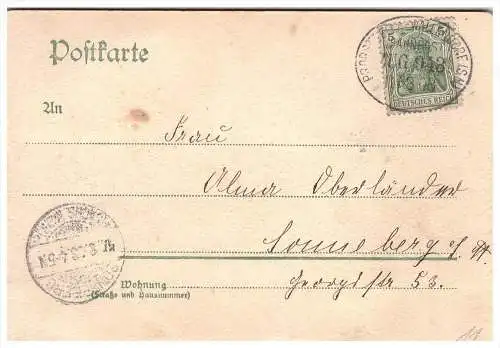 Postkarte
An
Frau
Alma Oberländer
Sonneberg
Georgstr 53.
Wohnung
(Straße und Hausnummer)
DEUTSCHES REICH